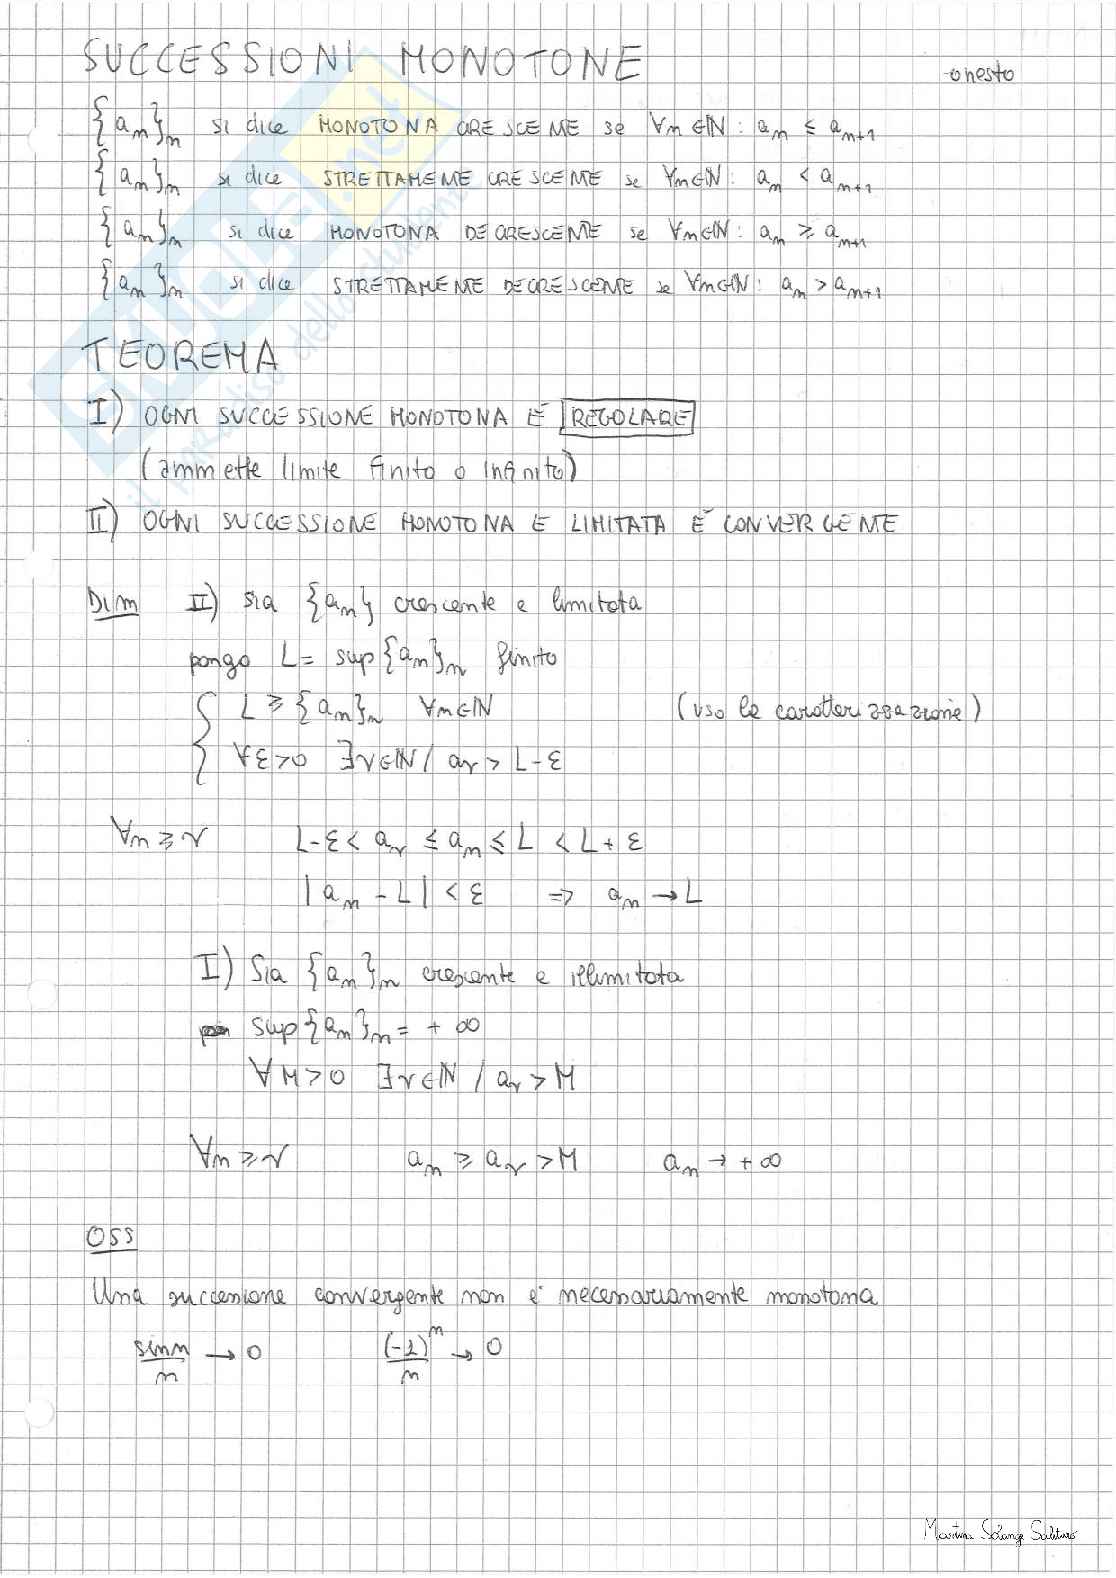 SUCCESSIONI MONOTONE
onesto
{aₙ}ₙ si dice MONOTONA CRESCENTE se ∀n∈ℕ: aₙ ≤ aₙ₊₁
{aₙ}ₙ si dice STRETTAMENTE CRESCENTE se ∀n∈ℕ: aₙ < aₙ₊₁
{aₙ}ₙ si dice MONOTONA DECRESCENTE se ∀n∈ℕ: aₙ ≥ aₙ₊₁
{aₙ}ₙ si dice STRETTAMENTE DECRESCENTE se ∀n∈ℕ: aₙ > aₙ₊₁
TEOREMA
I) OGNI SUCCESSIONE MONOTONA È REGOLARE
(ammette limite finito o infinito)
II) OGNI SUCCESSIONE MONOTONA E LIMITATA È CONVERGENTE
Dim II) Sia {aₙ} crescente e limitata
pongo L = sup{aₙ}ₙ finito
L ≥ {aₙ}ₙ ∀n∈ℕ (uso le caratterizzazione)
∀ε>0 ∃ν∈ℕ / aᵥ > L-ε
∀n ≥ ν L-ε < aᵥ ≤ aₙ ≤ L < L+ε
|aₙ - L| < ε ⇒ aₙ → L
I) Sia {aₙ}ₙ crescente e illimitata
sup{aₙ}ₙ = +∞
∀M>0 ∃ν∈ℕ / aᵥ > M
∀n ≥ ν aₙ ≥ aᵥ > M aₙ → +∞
OSS
Una successione convergente non è necessariamente monotona
sin n / n → 0 (-1)ⁿ / n → 0
Martina Solange Saliture